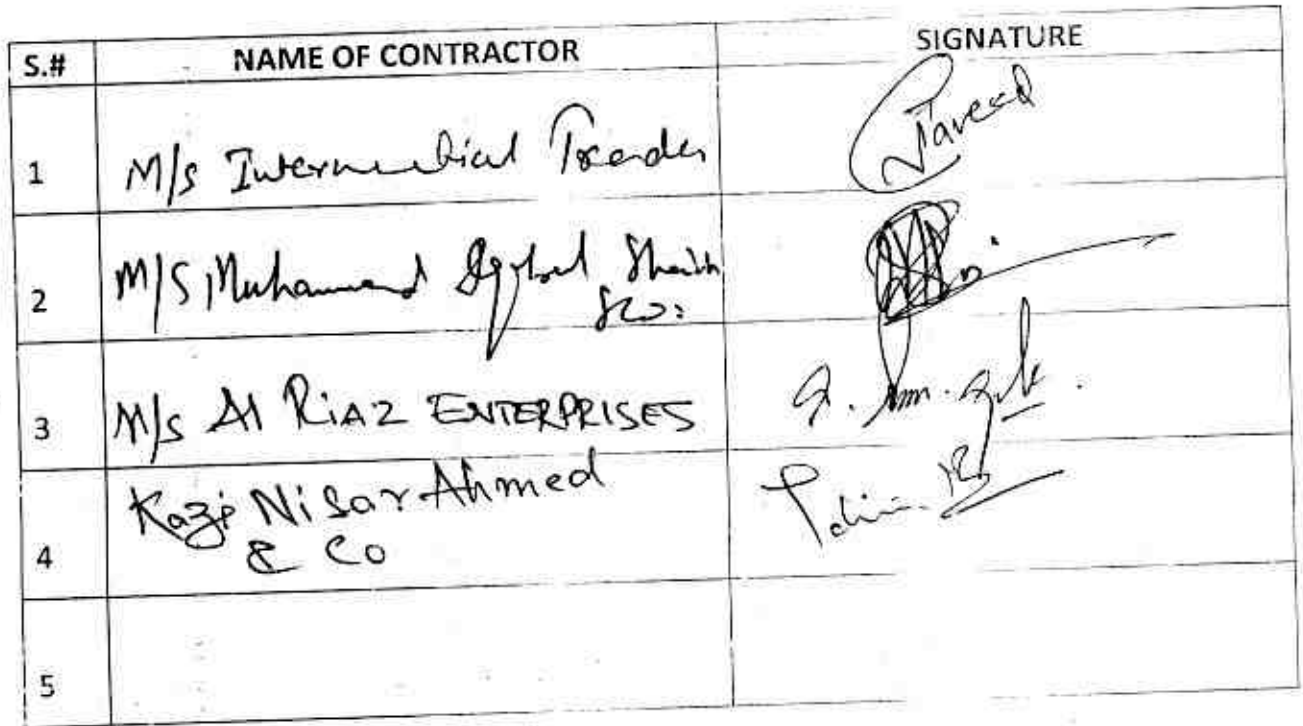 S.# NAME OF CONTRACTOR SIGNATURE
1 M/s Intermedical Traders Javeed
2 M/S Muhammad Iqbal Sheikh
&Co:
3 M/s Al RiAZ ENTERPRISES
4 Kazi Nisar Ahmed
& Co
5